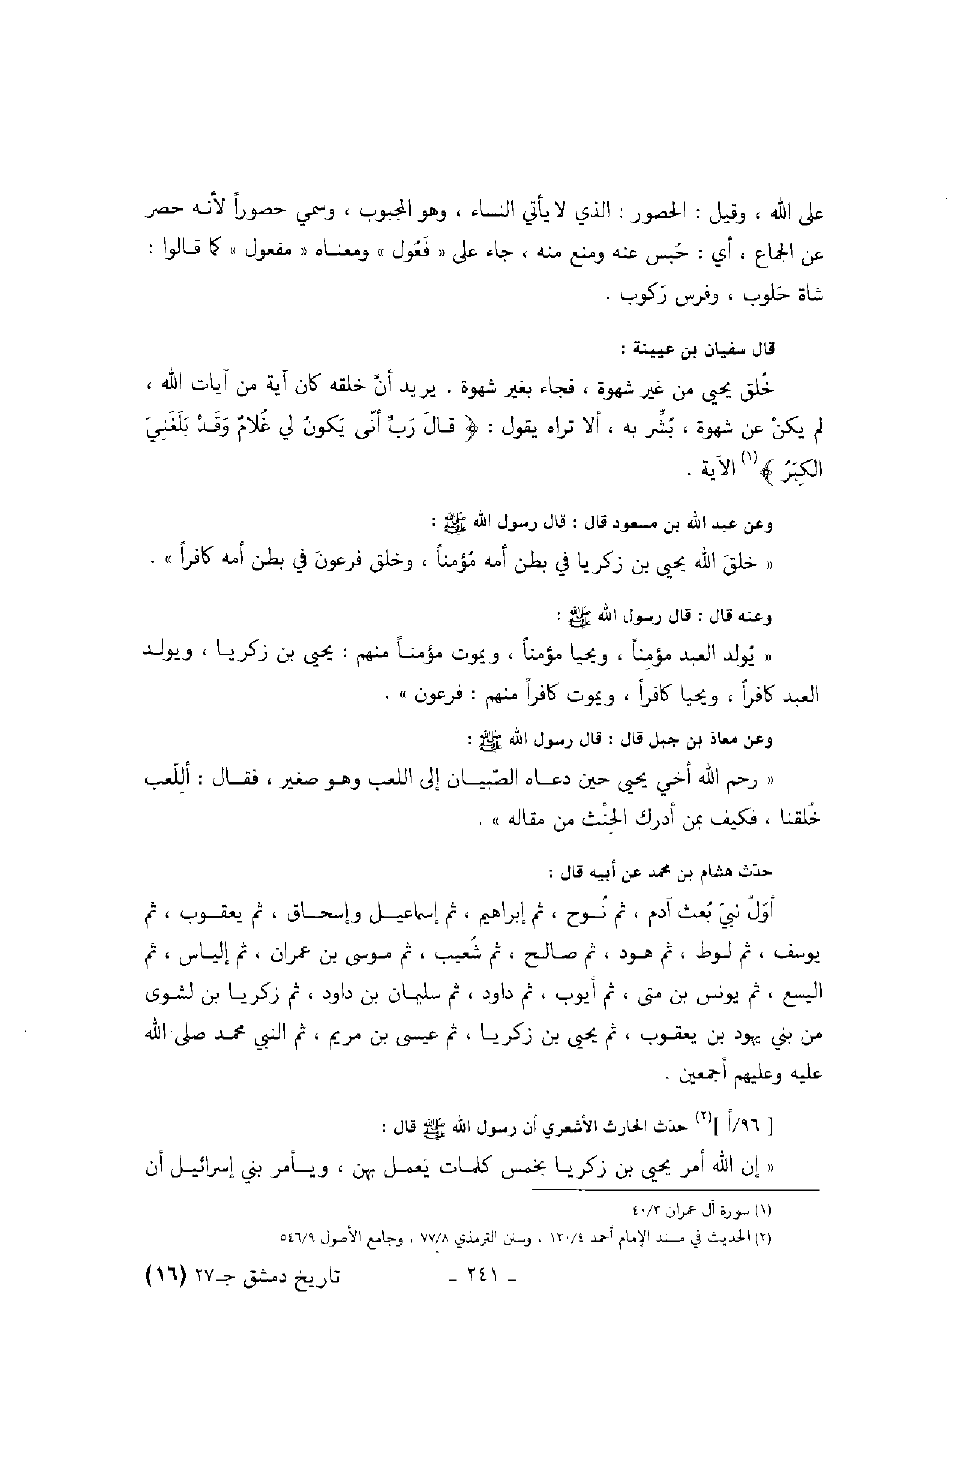 على الله ، وقيل : الحصور : الذي لا يأتي النساء ، وهو المجبوب ، وسمي حصوراً لأنه حصر
عن الجماع ، أي : حُبس عنه ومنع منه ، جاء على « فَعُول » ومعناه « مفعول » كما قالوا :
شاة حَلوب ، وفرس رَكوب .
قال سفيان بن عيينة :
خُلق يحيى من غير شهوة ، فجاء بغير شهوة . يريد أنّ خلقه كان آية من آيات الله ،
لم يكنْ عن شهوة ، بُشِّر به ، ألا تراه يقول : ﴿ قالَ رَبِّ أنّى يَكونُ لي غُلامٌ وَقَدْ بَلَغَنِيَ
الكِبَرُ ﴾(١) الآية .
وعن عبد الله بن مسعود قال : قال رسول الله ﷺ :
« خلقَ الله يحيى بن زكريا في بطن أمه مُؤمناً ، وخلق فرعونَ في بطن أمه كافراً » .
وعنه قال : قال رسول الله ﷺ :
« يُولد العبد مؤمناً ، ويحيا مؤمناً ، ويموت مؤمناً منهم : يحيى بن زكريا ، ويولد
العبد كافراً ، ويحيا كافراً ، ويموت كافراً منهم : فرعون » .
وعن معاذ بن جبل قال : قال رسول الله ﷺ :
« رحم الله أخي يحيى حين دعاه الصّبيان إلى اللعب وهو صغير ، فقال : أللّعب
خُلقنا ، فكيف بمن أدرك الحِنْث من مقاله » .
حدّث هشام بن محمد عن أبيه قال :
أوّلُ نبيّ بُعث آدم ، ثم نُوح ، ثم إبراهيم ، ثم إسماعيل وإسحاق ، ثم يعقوب ، ثم
يوسف ، ثم لوط ، ثم هود ، ثم صالح ، ثم شُعيب ، ثم موسى بن عمران ، ثم إلياس ، ثم
اليسع ، ثم يونس بن متى ، ثم أيوب ، ثم داود ، ثم سليمان بن داود ، ثم زكريا بن لشوى
من بني يهود بن يعقوب ، ثم يحيى بن زكريا ، ثم عيسى بن مريم ، ثم النبي محمد صلى الله
عليه وعليهم أجمعين .
[ ٩٦/أ ](٢) حدّث الحارث الأشعري أن رسول الله ﷺ قال :
« إن الله أمر يحيى بن زكريا بخمس كلمات يَعمل بهن ، ويأمر بني إسرائيل أن
(١) سورة آل عمران ٤٠/٣
(٢) الحديث في مسند الإمام أحمد ١٣٠/٤ ، وسنن الترمذي ٧٧/٨ ، وجامع الأصول ٥٤٦/٩
- ٢٤١ - تاريخ دمشق جـ٢٧ (١٦)